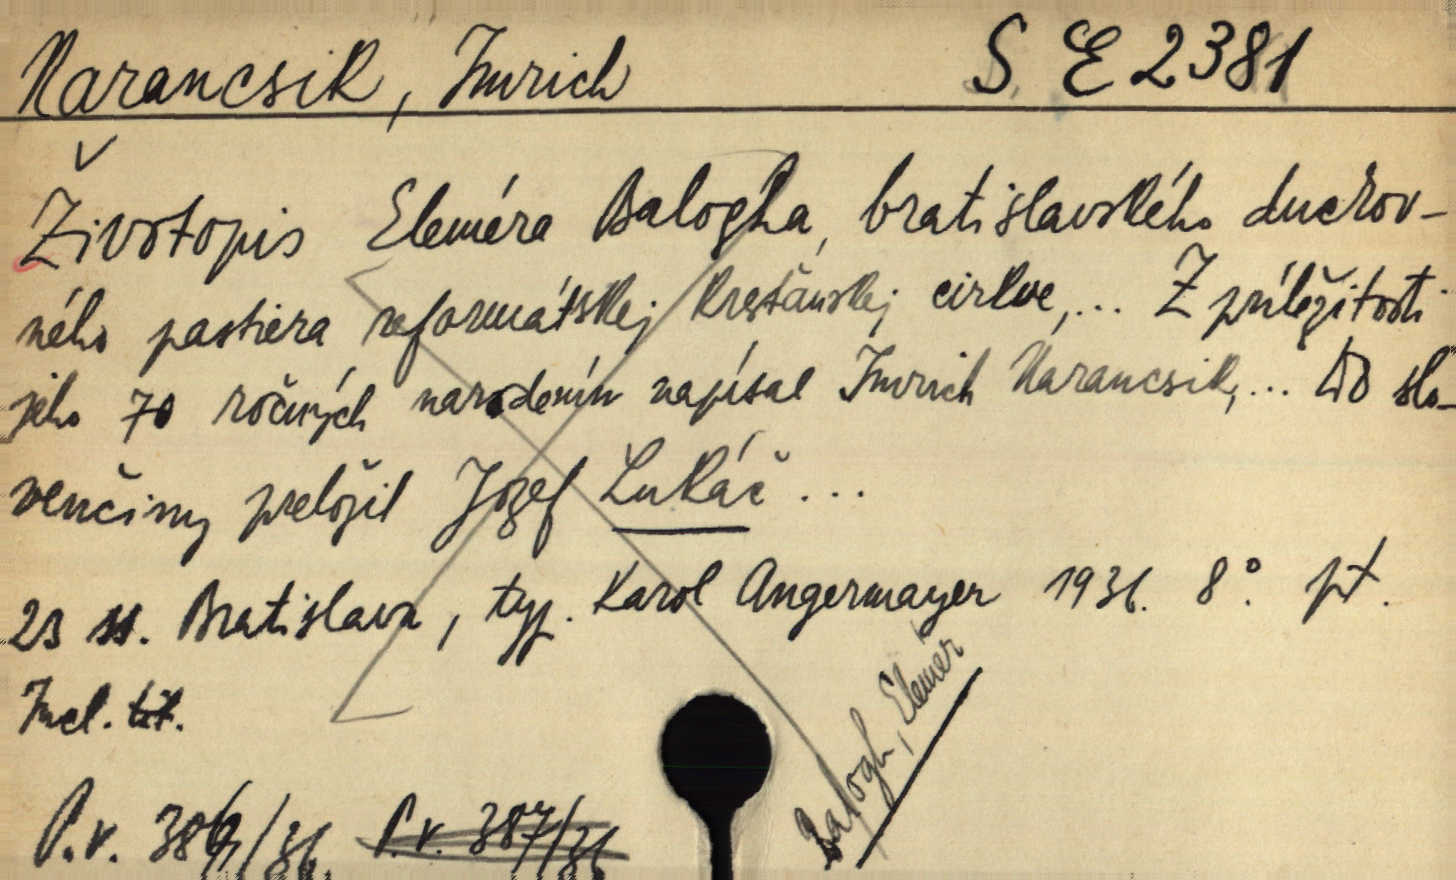 Narancsik, Imrich S. E 2381
Životopis Eleméra Balogha, bratislavského duchov-
ného pastiera reformátskej kresťanskej cirkve,... Z príležitosti
jeho 70 ročných narodenín napísal Imrich Narancsik,... Do slo-
venčiny preložil Jozef Lukáč...
23 ss. Bratislava, typ. Karol Angermayer 1936. 8°. pt.
Incl. tit.
P.v. /36. P.v. 387/36
Balogh, Elemér